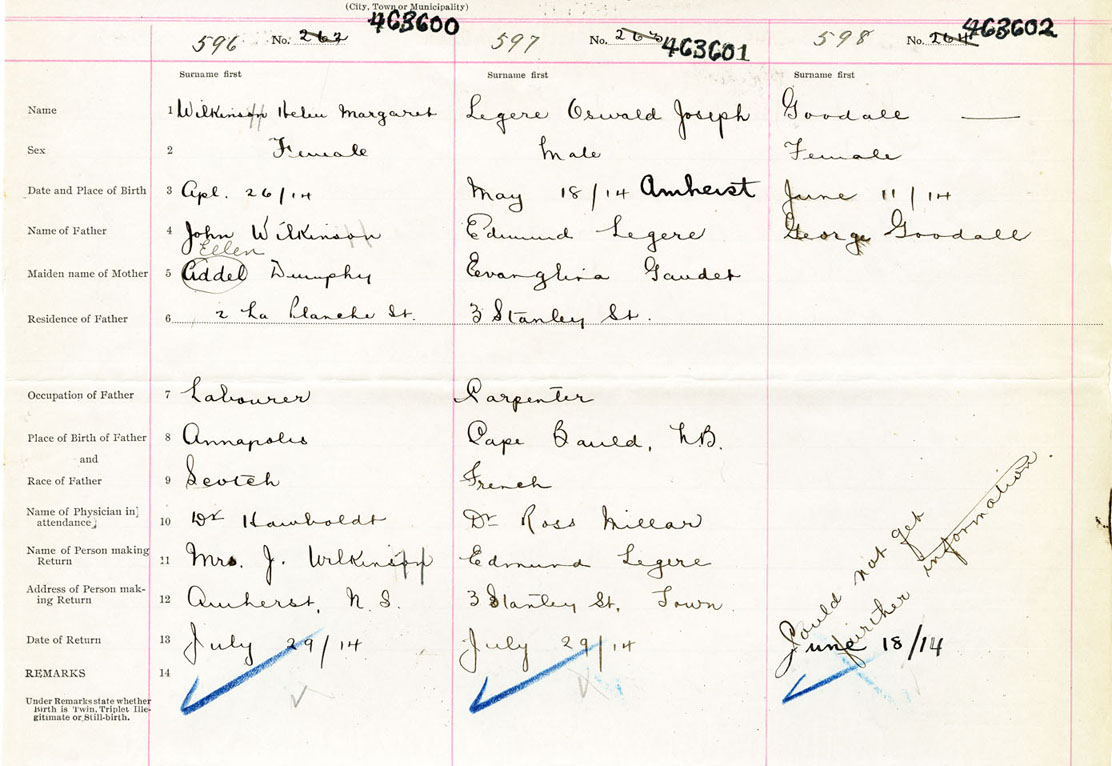 (City, Town or Municipality)
596 No. 262 463600 597 No. 263 463601 598 No. 264 463602
Surname first Surname first Surname first
Name 1 Wilkinson Helen Margaret Legere Oswald Joseph Goodall —
Sex 2 Female Male Female
Date and Place of Birth 3 Apl. 26/14 May 18/14 Amherst June 11/14
Name of Father 4 John Wilkinson Edmund Legere George Goodall
Ellen
Maiden name of Mother 5 Addel Dumphy Evanglina Gaudet
Residence of Father 6 2 La Planche St. 3 Stanley St.
Occupation of Father 7 Labourer Carpenter
Place of Birth of Father 8 Annapolis Cape Bauld, N.B.
and
Race of Father 9 Scotch French
Name of Physician in
attendance 10 Dr Hawboldt Dr Ross Millar
Name of Person making
Return 11 Mrs. J. Wilkinson Edmund Legere
Address of Person mak-
ing Return 12 Amherst, N.S. 3 Stanley St, Town.
Could not get
further information.
Date of Return 13 July 29/14 July 29/14 June 18/14
REMARKS 14
Under Remarks state whether
Birth is Twin, Triplet Ille-
gitimate or Still-birth.